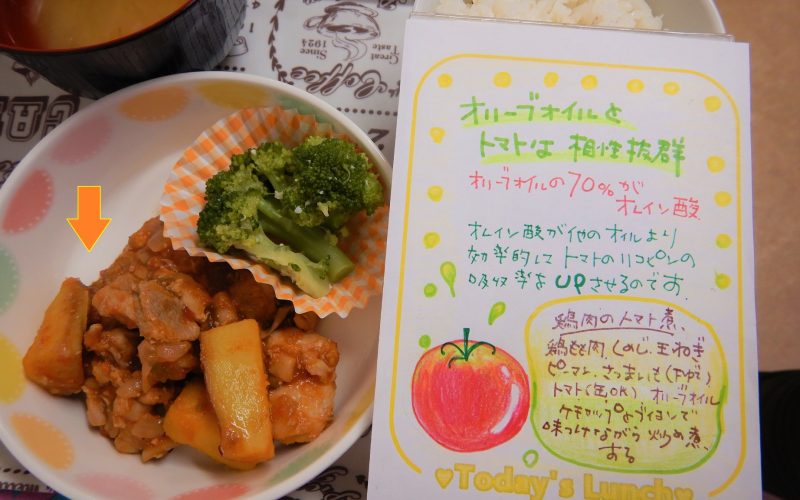 Since
1924
Great
Taste
Coffee
オリーブオイルと
トマトは 相性抜群
オリーブオイルの70%が
オレイン酸
オレイン酸が他のオイルより
効率的にトマトのリコピンの
吸収率をUPさせるのです.
鶏肉のトマト煮、
鶏もも肉、しめじ、玉ねぎ
ピーマン、さつまいも(下ゆで)
トマト(缶OK) オリーブオイル
ケチャップ
ブイヨンで
味つけしながら 炒め煮、
する
♥Today's Lunch♥